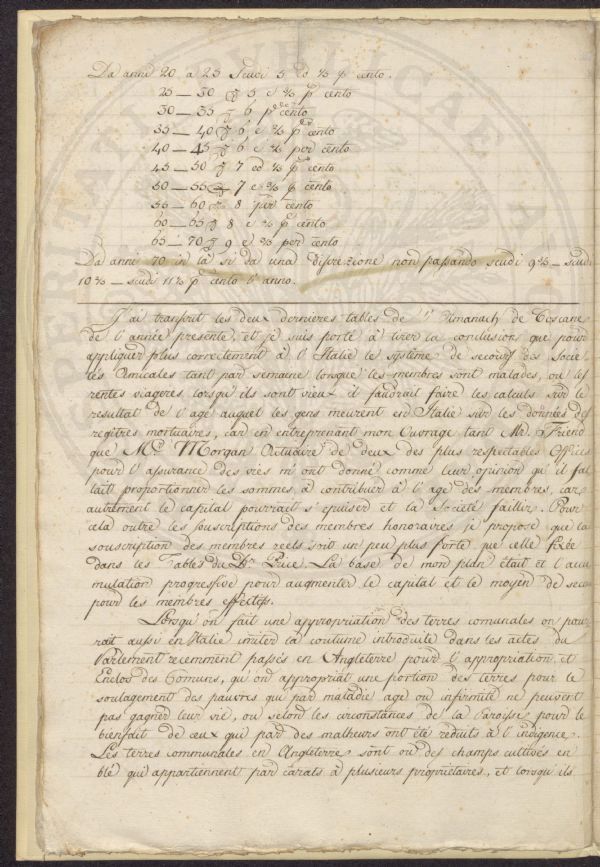 Da anni 20 a 25 Scudi 5 ed ⅔ p cento.
25 — 30 5 e ⅔ p cento
30 — 35 6 p cento
35 — 40 6 e ⅔ p cento
40 — 45 6 e ⅔ per cento
45 — 50 7 ed ⅔ p cento
50 — 55 7 e ⅔ p cento
55 — 60 8 per cento
60 — 65 8 e ⅔ p cento
65 — 70 9 e ⅔ per cento
Da anni 70 in là si da una discrezione non passando scudi 9⅔ — scudi
10⅔ — scudi 11⅔ p cento l'anno.
J'ai transcrit les deux dernieres tables de l'Almanach de Toscane
de l'année presente, et je suis porté à tirer la conclusion que pour
appliquer plus correctement à l'Italie le système de secours des Socie
tés Amicales tant par semaine lorsque les membres sont malades, ou les
rentes viageres lorsqu'ils sont vieux il faudrait faire les calculs sur le
resultat de l'age auquel les gens meurent en Italie sur les données des
registres mortuaires, car en entreprenant mon Ouvrage tant Mr. Friend
que Mr. Morgan Actuaire de deux des plus respectables Offices
pour l'assurance des vies m'ont donné comme leur opinion qu'il fal
lait proportionner les sommes à contribuer à l'age des membres, car
autrement le capital pourrait s'epuiser et la Societé faillir. Pour
cela outre les souscriptions des membres honoraires je propose que la
souscription des membres reels soit un peu plus forte que celle fixée
dans les Tables du Dr. Price. La base de mon plan était et l'accu
mulation progressive pour augmenter le capital et le moyen de secours
pour les membres effectifs.
Lorsqu'on fait une appropriation des terres comunales on pour
rait aussi en Italie imiter la coutume introduite dans les actes du
Parlement recemment passés en Angleterre pour l'appropriation et
Enclos des Comuns, qu'on appropriat une portion des terres pour le
soulagement des pauvres qui par maladie age ou infirmité ne peuvent
pas gagner leur vie, ou selon les circonstances de la Paroisse pour le
bienfait de ceux que par des malheurs ont été reduits à l'indigence.
Les terres communales en Angleterre sont ou des champs cultivés en
blé qui appartiennent par carats à plusieurs proprietaires, et lorsqu'ils